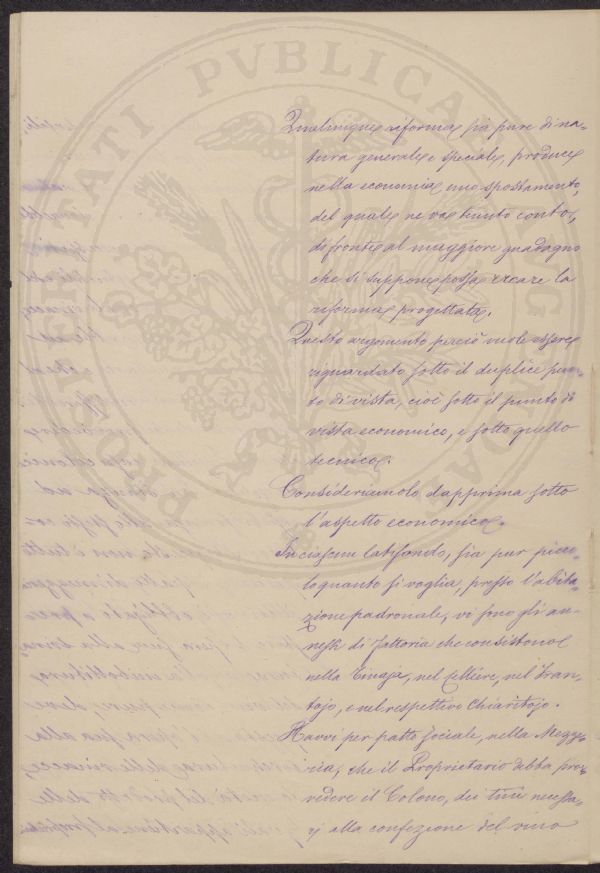 Qualunque riforma sia pure di na-
tura generale o speciale, produce
nella economia uno spostamento,
del quale ne va tenuto conto,
di fronte al maggiore guadagno
che si suppone possa recare la
riforma progettata.
Questo argomento perciò vuole essere
riguardato sotto il duplice pun-
to di vista, cioè sotto il punto di
vista economico, e sotto quello
tecnico.
Consideriamolo dapprima sotto
l'aspetto economico.
In ciascun latifondo, sia pur picco-
lo quanto si voglia, presso l'abita-
zione padronale, vi sono gli an-
nessi di Fattoria che consistono
nella Tinaja, nel Celliere, nel Fran-
tojo, e nel respettivo Chiaritojo.
Havvi per patto sociale, nella Mezze-
ria, che il Proprietario debba prov-
vedere il Colono, dei tini necessa-
rj alla confezione del vino